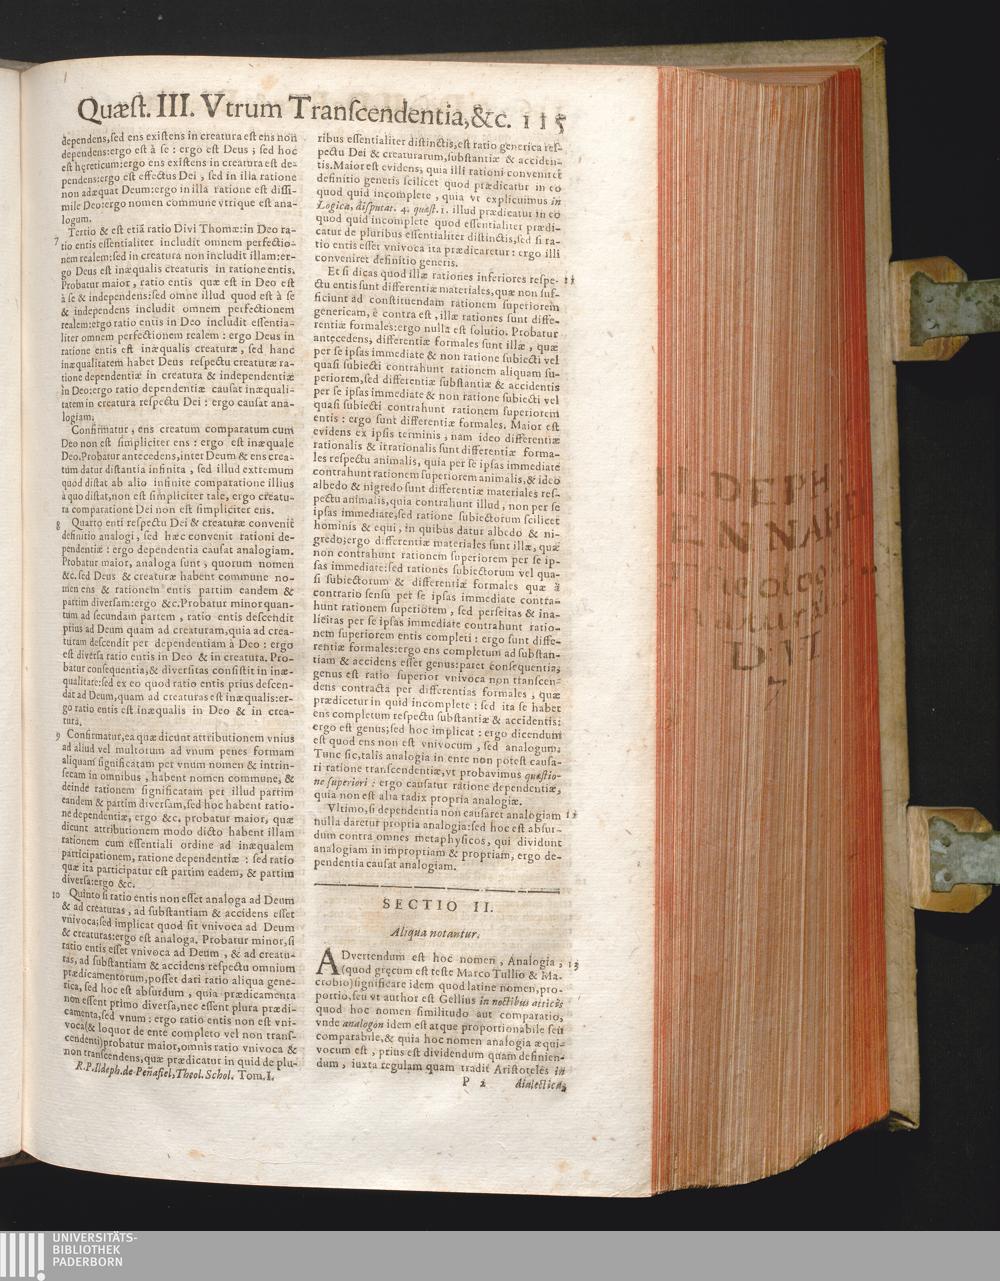 Quæst. III. Vtrum Transcendentia, &c. 115
dependens, sed ens existens in creatura est ens non
dependens: ergo est à se: ergo est Deus; sed hoc
est hęreticum: ergo ens existens in creatura est de-
pendens: ergo est effectus Dei, sed in illa ratione
non adæquat Deum: ergo in illa ratione est dissi-
mile Deo: ergo nomen commune vtrique est ana-
logum.
7 Tertio & est etiã ratio Divi Thomæ: in Deo ra-
tio entis essentialiter includit omnem perfectio-
nem realem: sed in creatura non includit illam: er-
go Deus est inæqualis creaturis in ratione entis.
Probatur maior, ratio entis quæ est in Deo est
à se & independens: sed omne illud quod est à se
& independens includit omnem perfectionem
realem: ergo ratio entis in Deo includit essentia-
liter omnem perfectionem realem: ergo Deus in
ratione entis est inæqualis creaturæ, sed hanc
inæqualitatem habet Deus respectu creaturæ ra-
tione dependentiæ in creatura & independentiæ
in Deo: ergo ratio dependentiæ causat inæquali-
tatem in creatura respectu Dei: ergo causat ana-
logiam.
Confirmatur, ens creatum comparatum cum
Deo non est simpliciter ens: ergo est inæquale
Deo. Probatur antecedens, inter Deum & ens crea-
tum datur distantia infinita, sed illud extremum
quod distat ab alio infinite comparatione illius
à quo distat, non est simpliciter tale, ergo creatu-
ra comparatione Dei non est simpliciter ens.
8 Quarto enti respectu Dei & creaturæ convenit
definitio analogi, sed hæc convenit rationi de-
pendentiæ: ergo dependentia causat analogiam.
Probatur maior, analoga sunt, quorum nomen
&c. sed Deus & creaturæ habent commune no-
men ens & rationem entis partim eandem &
partim diversam: ergo &c. Probatur minor quan-
tum ad secundam partem, ratio entis descendit
prius ad Deum quam ad creaturam, quia ad crea-
turam descendit per dependentiam à Deo: ergo
est diversa ratio entis in Deo & in creatura. Pro-
batur consequentia, & diversitas consistit in inæ-
qualitate: sed ex eo quod ratio entis prius descen-
dat ad Deum, quam ad creaturas est inæqualis: er-
go ratio entis est inæqualis in Deo & in crea-
tura.
9 Confirmatur, ea quæ dicunt attributionem vnius
ad aliud vel multorum ad vnum penes formam
aliquam significatam per vnum nomen & intrin-
secam in omnibus, habent nomen commune, &
deinde rationem significatam per illud partim
eandem & partim diversam, sed hoc habent ratio-
ne dependentiæ, ergo &c. probatur maior, quæ
dicunt attributionem modo dicto habent illam
rationem cum essentiali ordine ad inæqualem
participationem, ratione dependentiæ: sed ratio
quæ ita participatur est partim eadem, & partim
diversa: ergo &c.
10 Quinto si ratio entis non esset analoga ad Deum
& ad creaturas, ad substantiam & accidens esset
vnivoca; sed implicat quod sit vnivoca ad Deum
& creaturas: ergo est analoga. Probatur minor, si
ratio entis esset vnivoca ad Deum, & ad creatu-
ras, ad substantiam & accidens respectu omnium
prædicamentorum, posset dari ratio aliqua gene-
rica, sed hoc est absurdum, quia prædicamenta
non essent primo diversa, nec essent plura prædi-
camenta, sed vnum: ergo ratio entis non est vni-
voca (& loquor de ente completo vel non trans-
cendenti) probatur maior, omnis ratio vnivoca &
non transcendens, quæ prædicatur in quid de plu-
R.P. Ildeph. de Peñafiel, Theol. Schol. Tom. I.
ribus essentialiter distinctis, est ratio generica res-
pectu Dei & creaturarum, substantiæ & acciden-
tis. Maior est evidens, quia illi rationi conveniret
definitio generis scilicet quod prædicatur in eo
quod quid incomplete, quia vt explicuimus in
Logica, disputat. 4. quæst. 1. illud prædicatur in eo
quod quid incomplete quod essentialiter prædi-
catur de pluribus essentialiter distinctis, sed si ra-
tio entis esset vnivoca ita prædicaretur: ergo illi
conveniret definitio generis.
Et si dicas quod illæ rationes inferiores respe- 11
ctu entis sunt differentiæ materiales, quæ non suf-
ficiunt ad constituendam rationem superiorem
genericam, è contra est, illæ rationes sunt diffe-
rentiæ formales: ergo nulla est solutio. Probatur
antecedens, differentiæ formales sunt illæ, quæ
per se ipsas immediate & non ratione subiecti vel
quasi subiecti contrahunt rationem aliquam su-
periorem, sed differentiæ substantiæ & accidentis
per se ipsas immediate & non ratione subiecti vel
quasi subiecti contrahunt rationem superiorem
entis: ergo sunt differentiæ formales. Maior est
evidens ex ipsis terminis, nam ideo differentiæ
rationalis & irrationalis sunt differentiæ forma-
les respectu animalis, quia per se ipsas immediate
contrahunt rationem superiorem animalis, & ideo
albedo & nigredo sunt differentiæ materiales res-
pectu animalis, quia contrahunt illud, non per se
ipsas immediate, sed ratione subiectorum scilicet
hominis & equi, in quibus datur albedo & ni-
gredo; ergo differentiæ materiales sunt illæ, quæ
non contrahunt rationem superiorem per se ip-
sas immediate: sed rationes subiectorum vel qua-
si subiectorum & differentiæ formales quæ à
contrario sensu per se ipsas immediate contra-
hunt rationem superiorem, sed perseitas & ina-
lieitas per se ipsas immediate contrahunt ratio-
nem superiorem entis completi: ergo sunt diffe-
rentiæ formales: ergo ens completum ad substan-
tiam & accidens esset genus: patet consequentia;
genus est ratio superior vnivoca non transcen-
dens contracta per differentias formales, quæ
prædicetur in quid incomplete: sed ita se habet
ens completum respectu substantiæ & accidentis:
ergo est genus; sed hoc implicat: ergo dicendum
est quod ens non est vnivocum, sed analogum.
Tunc sic, talis analogia in ente non potest causa-
ri ratione transcendentiæ, vt probavimus quæstio-
ne superiori: ergo causatur ratione dependentiæ,
quia non est alia radix propria analogiæ.
Vltimo, si dependentia non causaret analogiam 12
nulla daretur propria analogia: sed hoc est absur-
dum contra omnes metaphysicos, qui dividunt
analogiam in impropriam & propriam, ergo de-
pendentia causat analogiam.
SECTIO II.
Aliqua notantur.
ADvertendum est hoc nomen, Analogia, 13
(quod gręcum est teste Marco Tullio & Ma-
crobio) significare idem quod latine nomen, pro-
portio, seu vt author est Gellius in noctibus atticis
quod hoc nomen similitudo aut comparatio,
vnde analogon idem est atque proportionabile seu
comparabile, & quia hoc nomen analogia æqui-
vocum est, prius est dividendum quam definien-
dum, iuxta regulam quam tradit Aristoteles in
P 2 dialectica,
DEPH
ENNA
Theolog
D.
UNIVERSITÄTS-
BIBLIOTHEK
PADERBORN